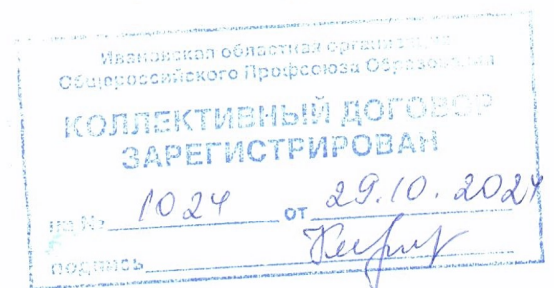 Ивановская областная организация
Общероссийского Профсоюза Образования
КОЛЛЕКТИВНЫЙ ДОГОВОР
ЗАРЕГИСТРИРОВАН
№ 1024 от 29.10.2024
подпись